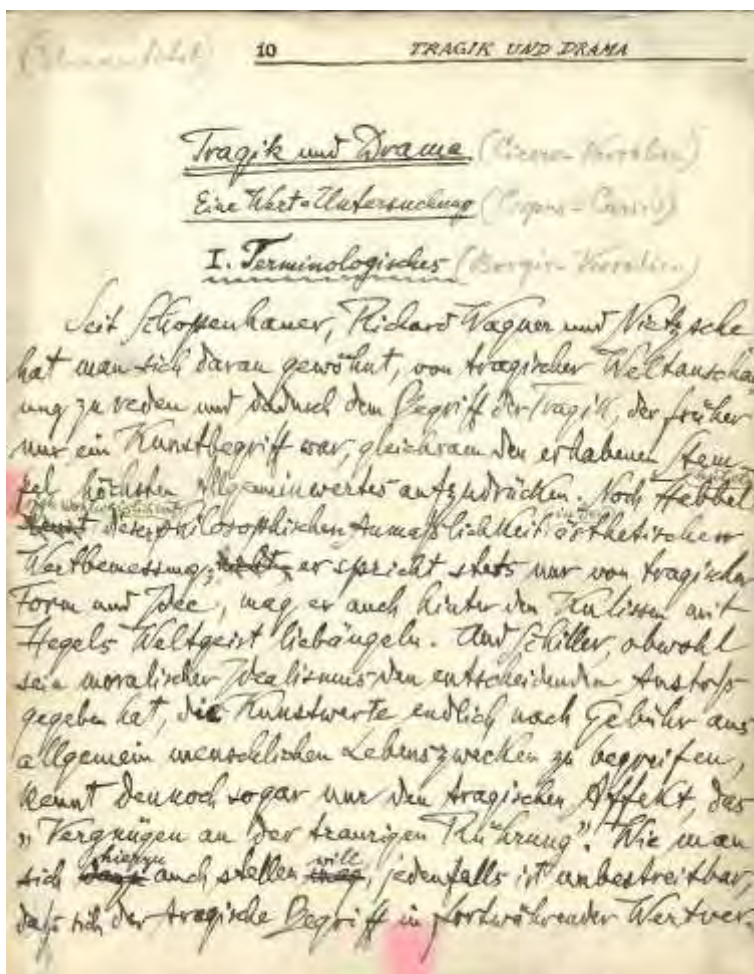 10 TRAGIK UND DRAMA
Tragik und Drama (Cicero-Versalien)
Eine Wert-Untersuchung (Corpus-Cursiv)
I. Terminologisches (Borgis-Versalien)
Seit Schopenhauer, Richard Wagner und Nietzsche
hat man sich daran gewöhnt, von tragischer Weltanschau
ung zu reden und dadurch dem Begriff der Tragik, der früher
nur ein Kunstbegriff war, gleichsam den erhabenen Stem-
pel höchsten Allgemeinwertes aufzudrücken. Noch Hebbel
dieser philosophischen Anmaßlichkeit ästhetischer
Wertbemessung; er spricht stets nur von tragischer
Form und Idee, mag er auch hinter den Kulissen mit
Hegels Weltgeist liebäugeln. Und Schiller, obwohl
sein moralischer Idealismus den entscheidenden Anstoß
gegeben hat, die Kunstwerte endlich nach Gebühr aus
allgemein menschlichen Lebenszwecken zu begreifen,
kennt dennoch sogar nur den tragischen Affekt, das
„Vergnügen an der traurigen Rührung". Wie man
sich hierzu auch stellen will, jedenfalls ist unbestreitbar,
daß sich der tragische Begriff in fortwährender Wertver-